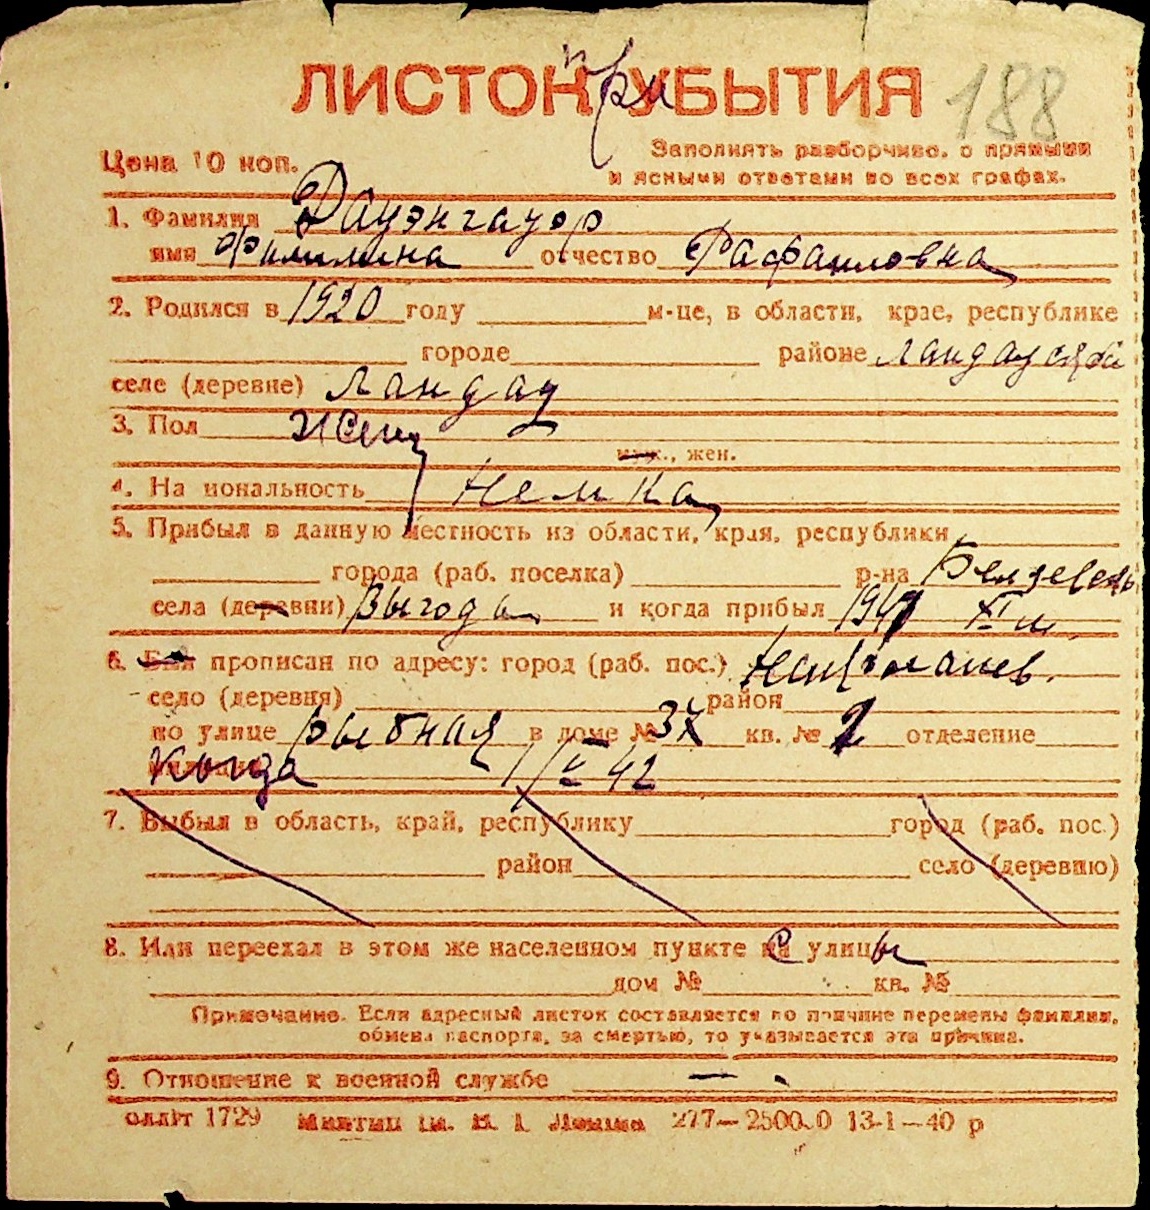 ЛИСТОК при УБЫТИЯ 188
Цена 10 коп. Заполнять разборчиво, с прямыми
и ясными ответами во всех графах.
1. Фамилия Рауэнгауер
имя Филилина отчество Рафаиловна
2. Родился в 1920 году м-це, в области, крае, республике
городе районе Ландауский
селе (деревне) Ландау
3. Пол жен
муж., жен.
4. На иональность Немка
5. Прибыл в данную местность из области, края, республики
города (раб. поселка) р-на
села (деревни) Выгода и когда прибыл 1941 XI м.
6. Был прописан по адресу: город (раб. пос.) Николаев.
село (деревня) район
по улице Рыбная в доме № 37 кв. № 2 отделение
Когда 1/V 42
7. Выбыл в область, край, республику город (раб. пос.)
район село (деревню)
8. Или переехал в этом же населенном пункте с улицы
дом № кв. №
Примечание. Если адресный листок составляется по причине перемены фамилии,
обмена паспорта, за смертью, то указывается эта причина.
9. Отношение к военной службе —
оллiт 1729 277—2500.0 13-1—40 р